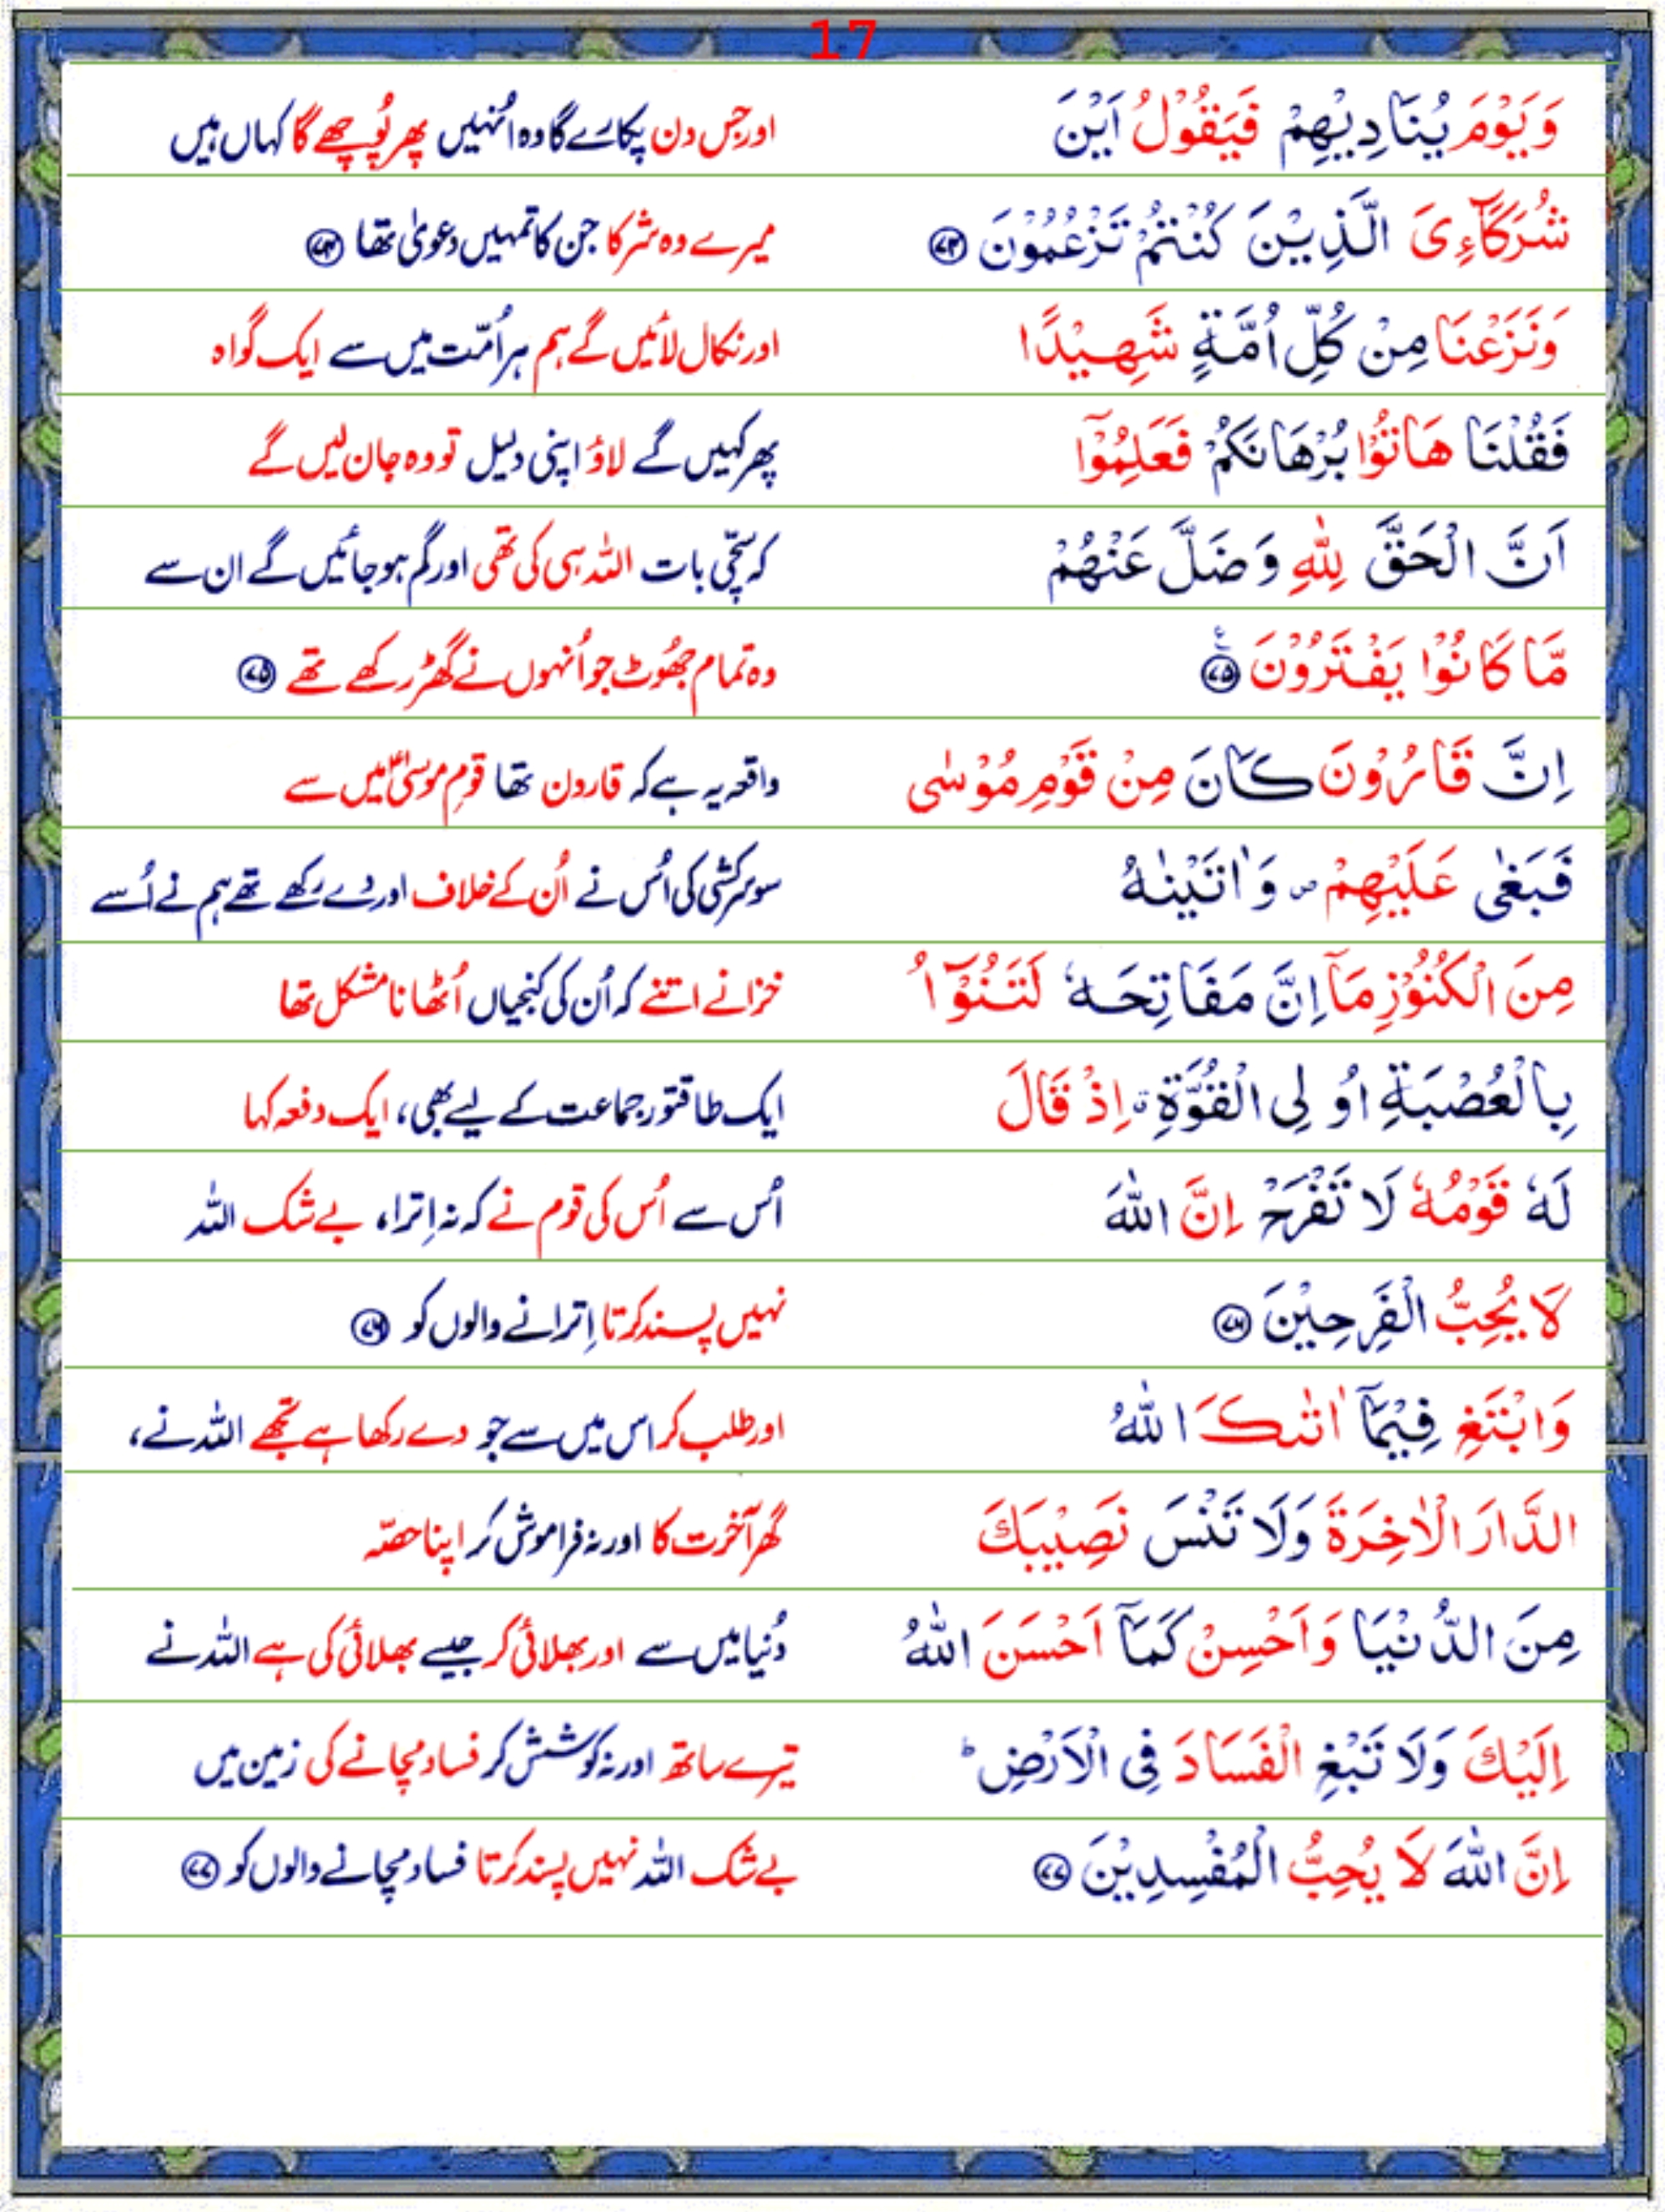 17
وَيَوْمَ يُنَادِيْهِمْ فَيَقُوْلُ اَيْنَ اور جس دن پکارے گا وہ اُنہیں پھر پُوچھے گا کہاں ہیں
شُرَكَآءِىَ الَّذِيْنَ كُنْتُمْ تَزْعُمُوْنَ ﴿۷۴﴾ میرے وہ شرکا جن کا تمہیں دعویٰ تھا ﴿۷۴﴾
وَنَزَعْنَا مِنْ كُلِّ اُمَّةٍ شَهِيْدًا اور نکال لائیں گے ہم ہر اُمّت میں سے ایک گواہ
فَقُلْنَا هَاتُوْا بُرْهَانَكُمْ فَعَلِمُوْٓا پھر کہیں گے لاؤ اپنی دلیل تو وہ جان لیں گے
اَنَّ الْحَقَّ لِلّٰهِ وَضَلَّ عَنْهُمْ کہ سچّی بات اللہ ہی کی تھی اور گم ہو جائیں گے ان سے
مَّا كَانُوْا يَفْتَرُوْنَ ﴿۷۵﴾ع وہ تمام جھُوٹ جو اُنہوں نے گھڑ رکھے تھے ﴿۷۵﴾
اِنَّ قَارُوْنَ كَانَ مِنْ قَوْمِ مُوْسٰى واقعہ یہ ہے کہ قارون تھا قومِ موسیٰؑ میں سے
فَبَغٰى عَلَيْهِمْ ۖ وَاٰتَيْنٰهُ سو سرکشی کی اُس نے اُن کے خلاف اور دے رکھے تھے ہم نے اُسے
مِنَ الْكُنُوْزِ مَآ اِنَّ مَفَاتِحَهٗ لَتَنُوْٓاُ خزانے اتنے کہ اُن کی کنجیاں اُٹھانا مشکل تھا
بِالْعُصْبَةِ اُولِى الْقُوَّةِ ۗ اِذْ قَالَ ایک طاقتور جماعت کے لیے بھی، ایک دفعہ کہا
لَهٗ قَوْمُهٗ لَا تَفْرَحْ اِنَّ اللّٰهَ اُس سے اُس کی قوم نے کہ نہ اِترا، بے شک اللہ
لَا يُحِبُّ الْفَرِحِيْنَ ﴿۷۶﴾ نہیں پسند کرتا اِترانے والوں کو ﴿۷۶﴾
وَابْتَغِ فِيْمَآ اٰتٰىكَ اللّٰهُ اور طلب کر اس میں سے جو دے رکھا ہے تجھے اللہ نے،
الدَّارَ الْاٰخِرَةَ وَلَا تَنْسَ نَصِيْبَكَ گھر آخرت کا اور نہ فراموش کر اپنا حصّہ
مِنَ الدُّنْيَا وَاَحْسِنْ كَمَآ اَحْسَنَ اللّٰهُ دُنیا میں سے اور بھلائی کر جیسے بھلائی کی ہے اللہ نے
اِلَيْكَ وَلَا تَبْغِ الْفَسَادَ فِى الْاَرْضِ ؕ تیرے ساتھ اور نہ کوشش کر فساد مچانے کی زمین میں
اِنَّ اللّٰهَ لَا يُحِبُّ الْمُفْسِدِيْنَ ﴿۷۷﴾ بے شک اللہ نہیں پسند کرتا فساد مچانے والوں کو ﴿۷۷﴾